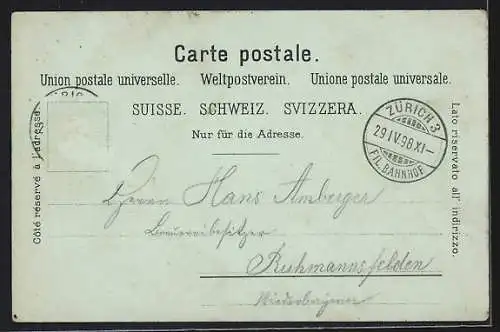 Carte postale.
Union postale universelle. Weltpostverein. Unione postale universale.
SUISSE. SCHWEIZ. SVIZZERA.
Nur für die Adresse.
Côté réservé à l'adresse.
Lato riservato all' indirizzo.
ZÜRICH 3
29 IV 98 XI-
FIL. BAHNHOF
Herrn Hans Amberger
Brauereibesitzer
Ruhmannsfelden
Niederbayern